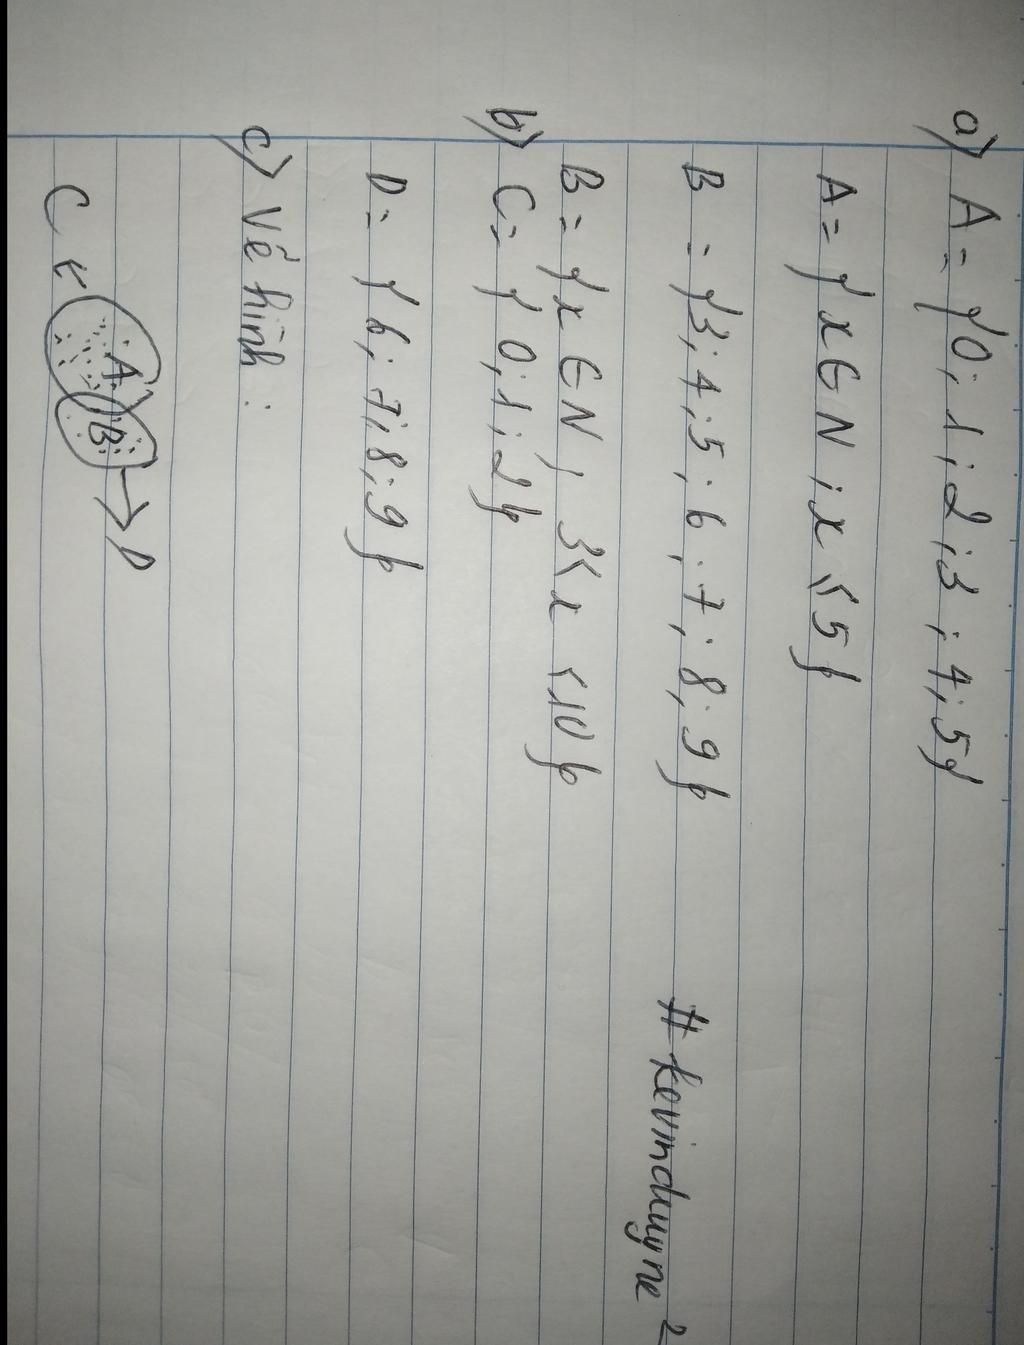 a) A = {0; 1; 2; 3; 4; 5}
A = {x ∈ N; x ≤ 5}
B = {3; 4; 5; 6; 7; 8; 9}
B = {x ∈ N; 3 ≤ x < 10}
b) C = {0; 1; 2}
D = {6; 7; 8; 9}
c) Vẽ hình:
C A B D
# kevinduyne 2